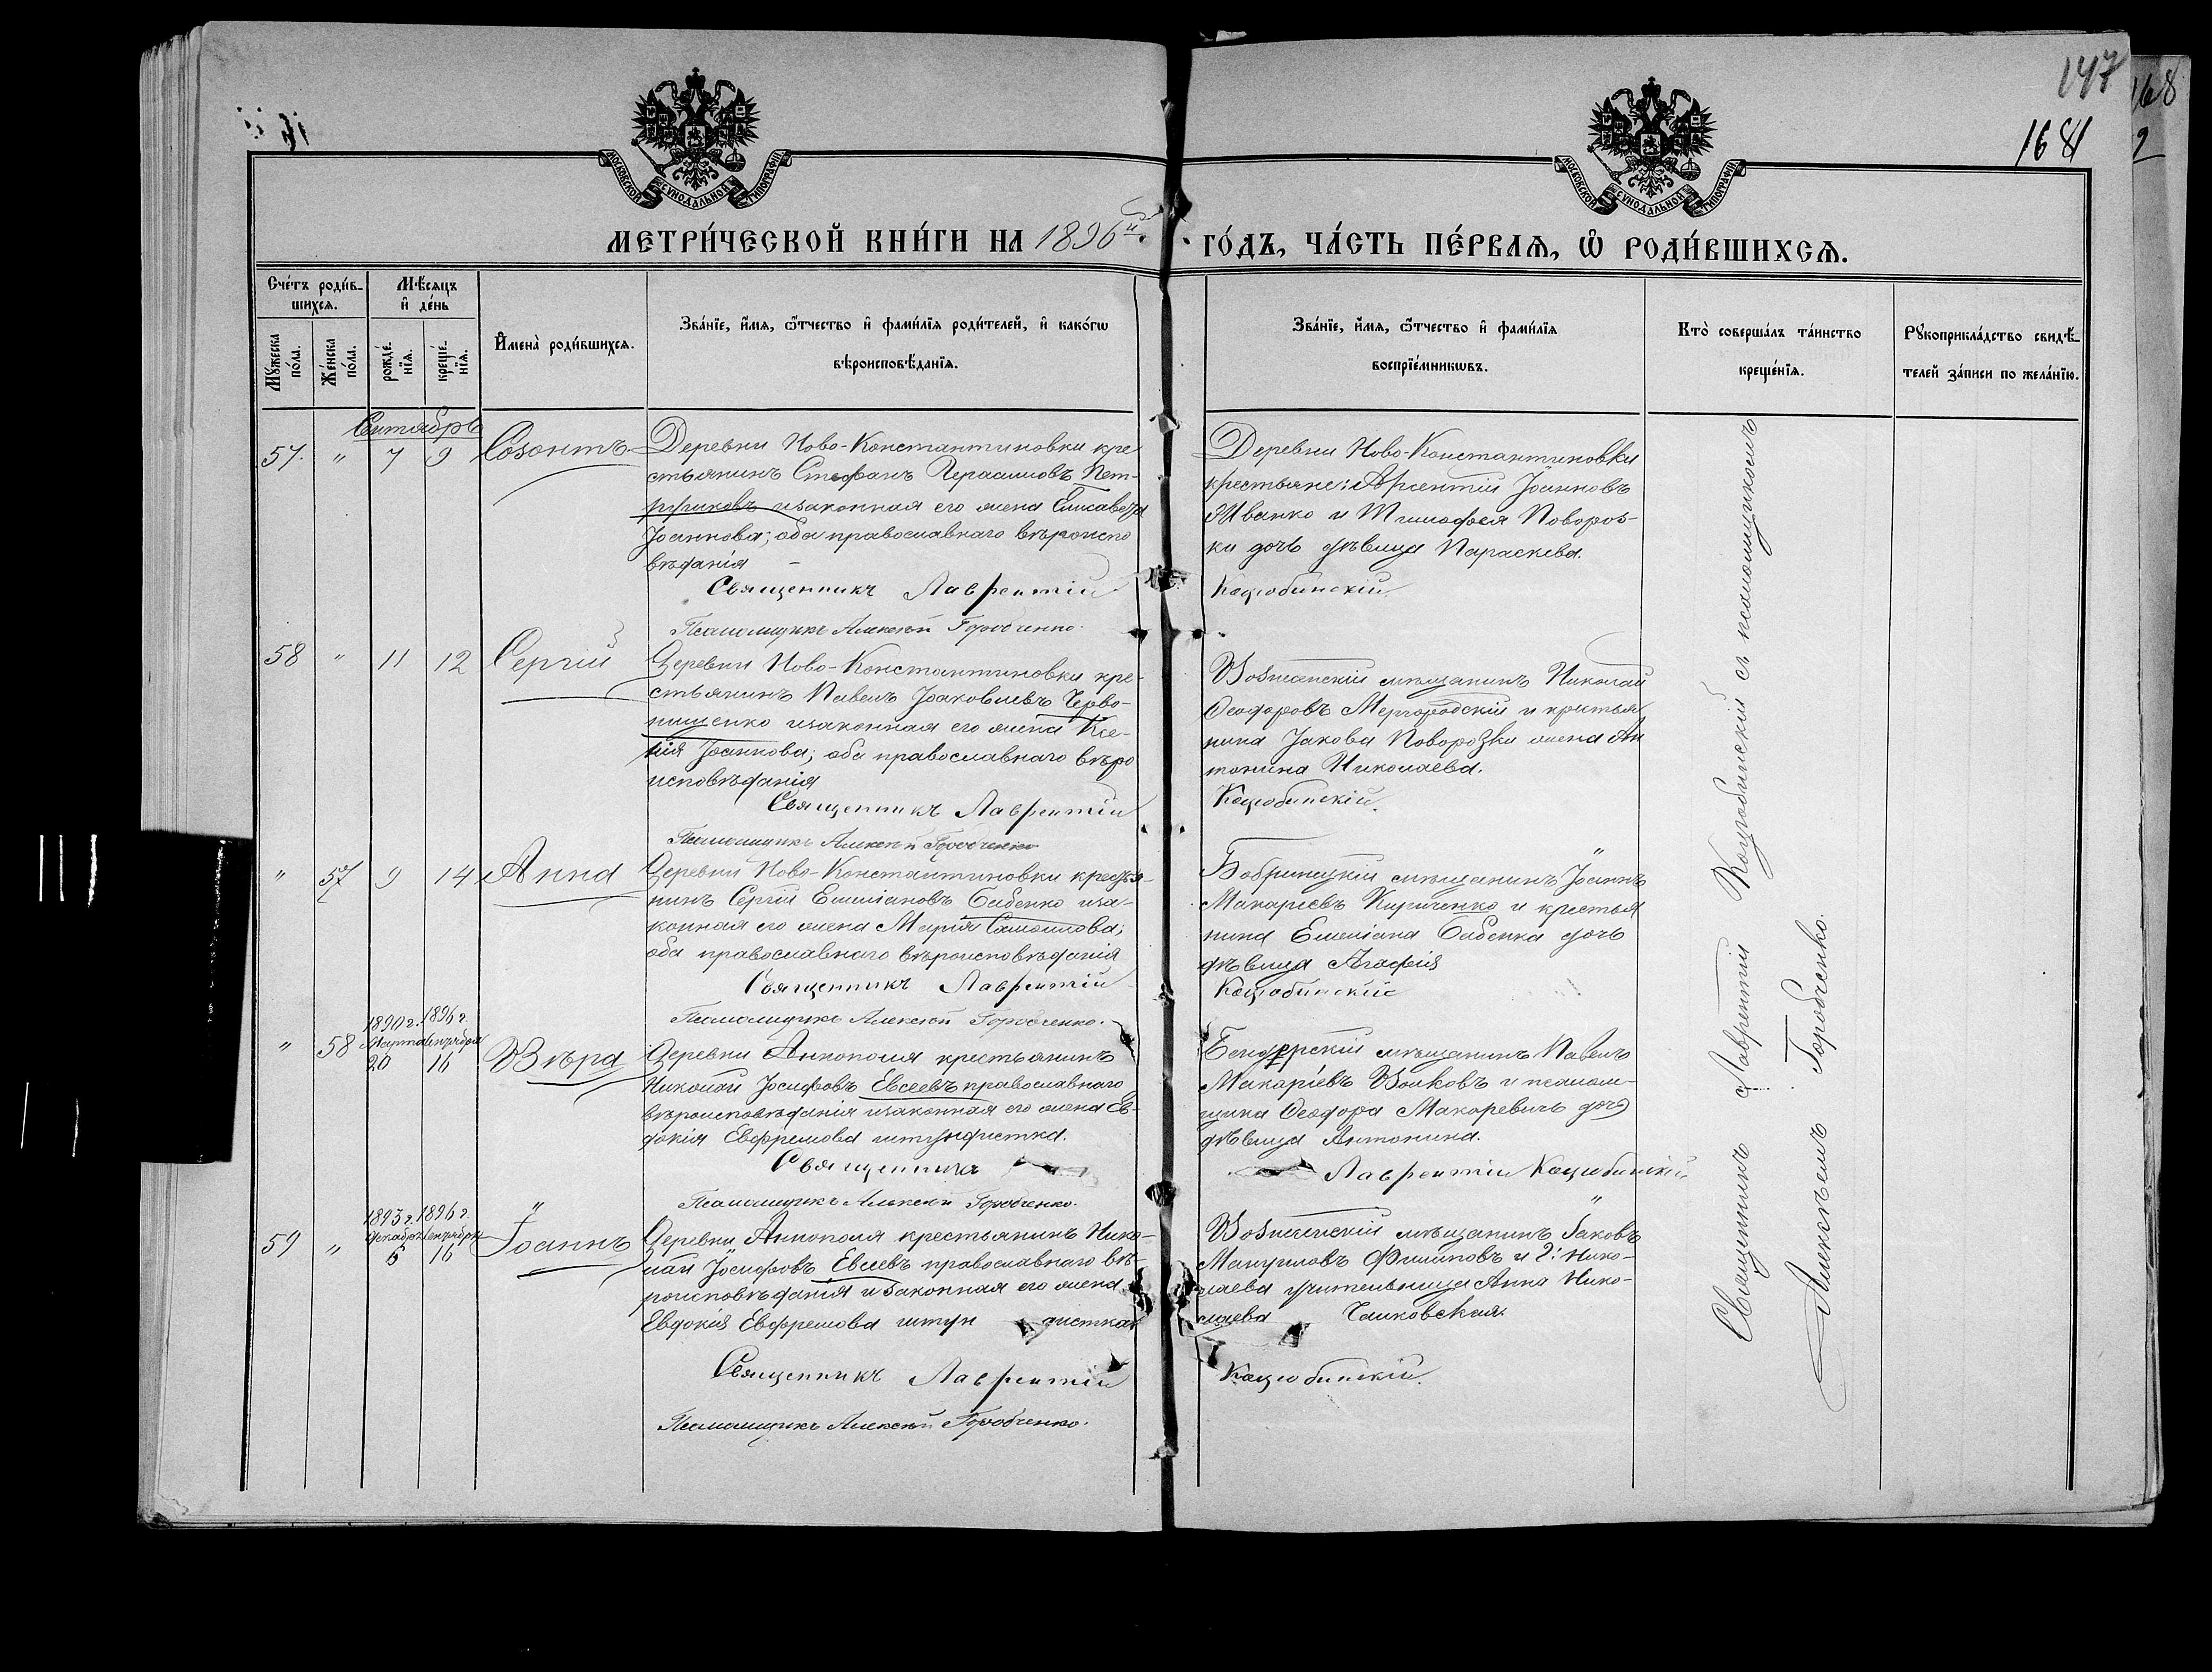 147
168
1681
2
МОСКОВСКОЙ СУНОДАЛЬНОЙ ТИПОГРАФІИ
МОСКОВСКОЙ СУНОДАЛЬНОЙ ТИПОГРАФІИ
МЕТРИ́ЧЕСКОЙ КНИ́ГИ НА 1896й
ГО́ДЪ, ЧА́СТЬ ПЕ́РВАЯ, Ѡ РОДИ́ВШИХСЯ.
Сче́тъ роди́в-
шихся.
Мѣ́сяцъ
и҆ де́нь
Мꙋ́жеска по́ла.
Же́нска по́ла.
рожде́-нїя.
креще́-нїя.
И҆мена̀ роди́вшихся.
Зва́нїе, и҆́мя, ѻ҆́тчество и҆ фами́лїя роди́телей, и҆ како́гѡ
вѣроисповѣ́данїя.
Зва́нїе, и҆́мя, ѻ҆́тчество и҆ фами́лїя
воспрїе́мникѡвъ.
Кто̀ соверша́лъ та́инство
креще́нїя.
Рꙋкоприкла́дство свидѣ́-
телей за́писи по жела́нїю.
Сентябрь
57. " 7 9 Созонтъ
Деревни Ново-Константиновки кре
стьянинъ Стефанъ Герасимовъ Пет-
риковъ изаконная его жена Елисавета
Іоаннова; оба православнаго вѣроиспо
вѣданія
Священникъ Лаврентій
Псаломщикъ Алексѣй Горобченко.
Деревни Ново-Константиновки
крестьяне: Арсентій Іоанновъ
Иванко и Тимофея Повороз-
ки дочь дѣвица Параскева.
Коцюбинскій.
58 " 11 12 Сергій
Деревни Ново-Константиновки кре-
стьянинъ Павелъ Іоаковлевъ Черво-
нищенко изаконная его жена Ксе-
нія Іоаннова; оба православнаго вѣро
исповѣданія
Священникъ Лаврентій
Псаломщикъ Алексѣй Горобченко
Вознесенскій мѣщанинъ Николай
Ѳеодоровъ Мергородскій и крестья
нина Іакова Поворозки жена Ан
тонина Николаева.
Коцюбинскій.
" 57 9 14 Анна
Деревни Ново-Константиновки крестья-
нинъ Сергій Емеліановъ Бабенко иза-
конная его жена Марія Самоилова;
оба православнаго вѣроисповѣданія
Священникъ Лаврентій
Псаломщикъ Алексѣй Горобченко.
Бобринецкій мѣщанинъ Іоаннъ
Макаріевъ Кириченко и крестья
нина Емеліана Бабенка дочь
дѣвица Агафія
Коцюбинскій
1890 г. 1896 г.
Марта Сентября
" 58 20 16 Вѣра
Деревни Аннополя крестьянинъ
Николай Іосифовъ Евсеевъ православнаго
вѣроисповѣданія изаконная его жена Ев-
докія Евфремова штундистка.
Священникъ
Псаломщикъ Алексѣй Горобченко.
Бендерскій мѣщанинъ Павелъ
Макаріевъ Волковъ и псалом-
щика Ѳеодора Макаревичъ дочь
дѣвица Антонина.
Лаврентій Коцюбинскій.
1893 г. 1896 г.
Декабря Сентября
59 " 6 16 Іоаннъ
Деревни Аннополя крестьянинъ Нико-
лай Іосифовъ Евсеевъ православнаго вѣ-
роисповѣданія изаконная его жена
Евдокія Евфремова штун дистка
Священникъ Лаврентій
Псаломщикъ Алексѣй Горобченко.
Вознесенскій мѣщанинъ Іаковъ
Мануиловъ Филиповъ и г. Нико-
лаева учительница Анна Нико-
лаева Чайковская.
Коцюбинскій.
Священникъ Лаврентій Коцюбинскій съ псаломщикомъ
Алексѣемъ Горобченко.